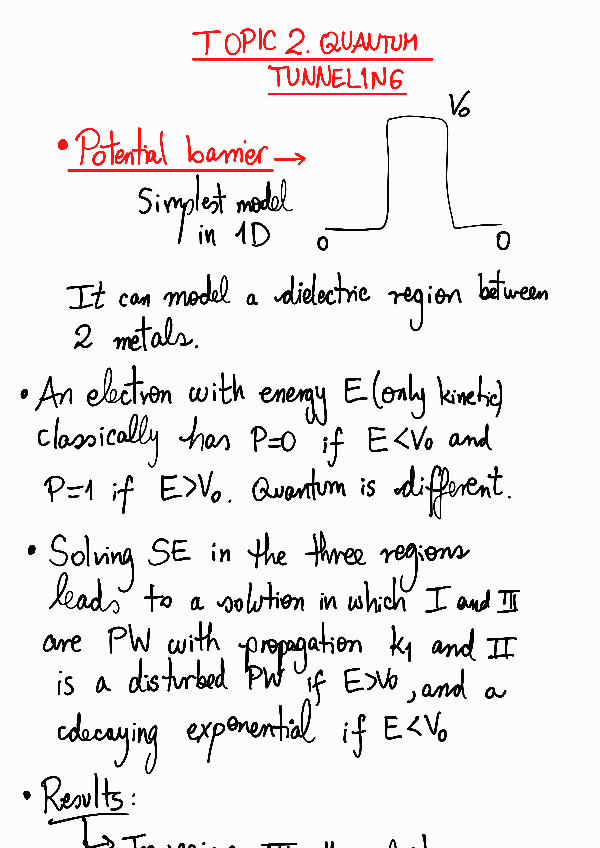 TOPIC 2. QUANTUM
TUNNELING
V₀
• Potential barrier →
Simplest model
in 1D
0
0
It can model a dielectric region between
2 metals.
• An electron with energy E (only kinetic)
classically has P=0 if E<V₀ and
P=1 if E>V₀. Quantum is different.
• Solving SE in the three regions
leads to a solution in which I and III
are PW with propagation k₁ and II
is a disturbed PW if E>V₀, and a
decaying exponential if E<V₀
• Results: